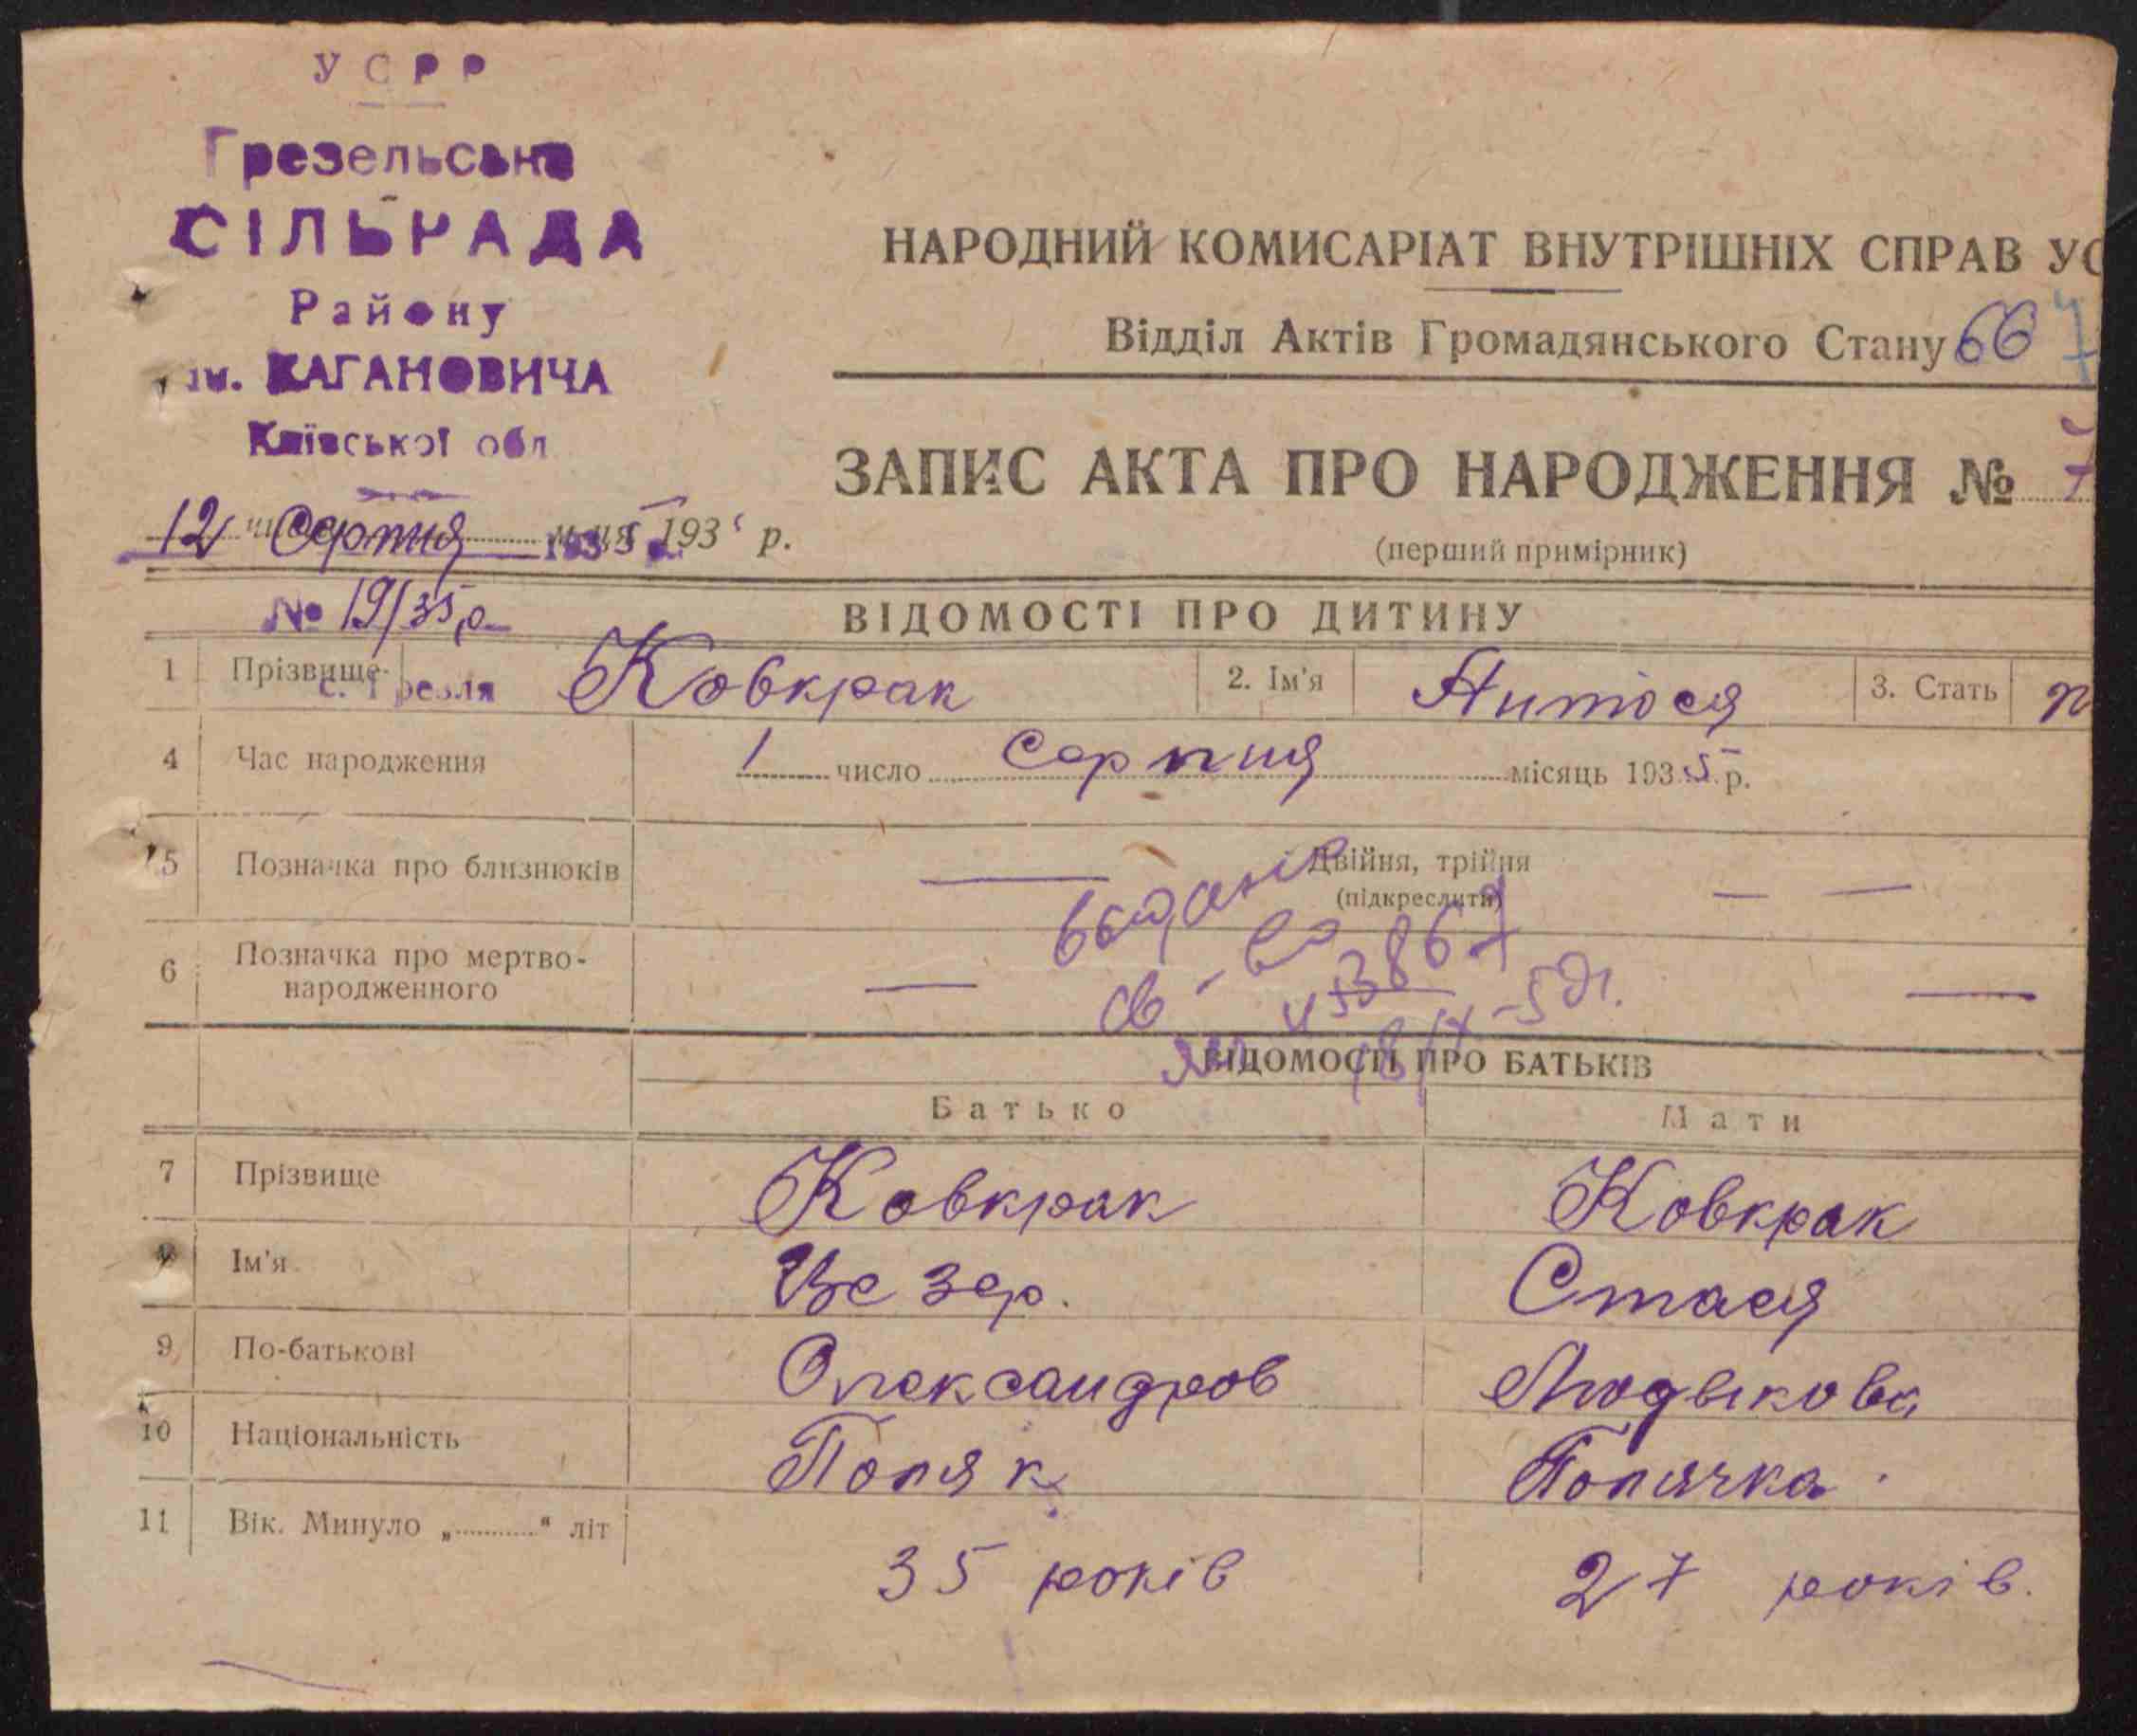 УСРР
Грезельська
СІЛЬРАДА
Району
ім. КАГАНОВИЧА
Київської обл
12 Серпня 1935 193 р.
№ 19/35 р.
с. Грезля
НАРОДНИЙ КОМИСАРІАТ ВНУТРІШНІХ СПРАВ УС
Відділ Актів Громадянського Стану 66
ЗАПИС АКТА ПРО НАРОДЖЕННЯ № 7
(перший примірник)
ВІДОМОСТІ ПРО ДИТИНУ
1 Прізвище Ковкрак 2. Ім'я Антося 3. Стать
4 Час народження 1 число Серпня місяць 1935 р.
5 Позначка про близнюків — Двійня, трійня — —
(підкреслити)
6 Позначка про мертво-
народженного — —
выдано
св-во
453867
18/IX-51.
ВІДОМОСТІ ПРО БАТЬКІВ
Батько Мати
7 Прізвище Ковкрак Ковкрак
8 Ім'я Цезер. Стася
9 По-батькові Олександров Людвіковa
10 Національність Поляк Полячка.
11 Вік. Минуло „..........“ літ 35 років 27 років.